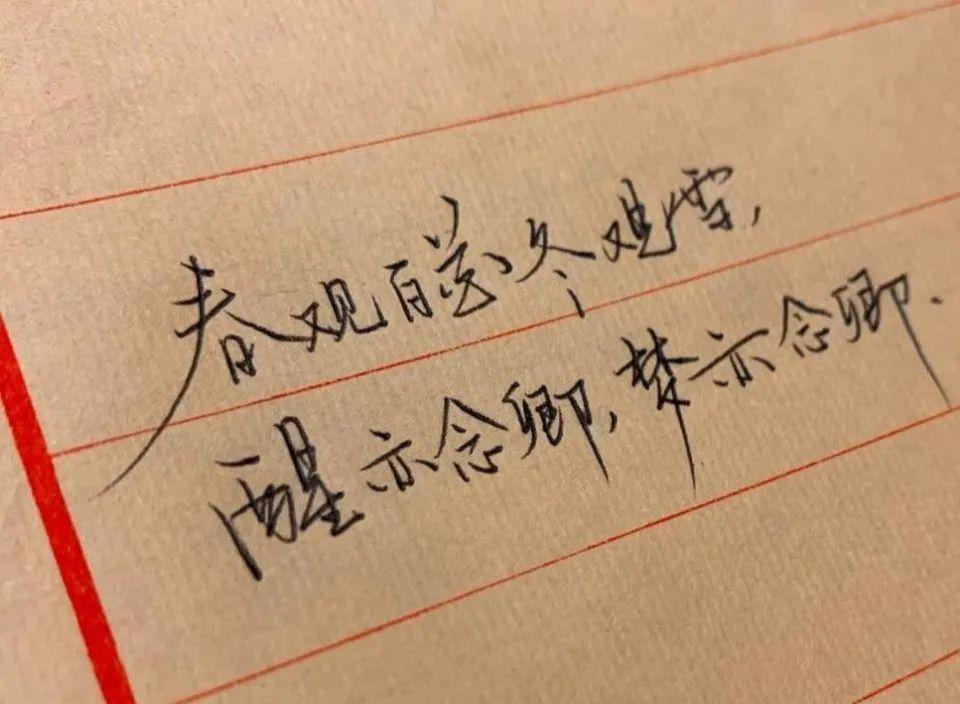 春观百花冬观雪，
醒亦念卿，梦亦念卿.